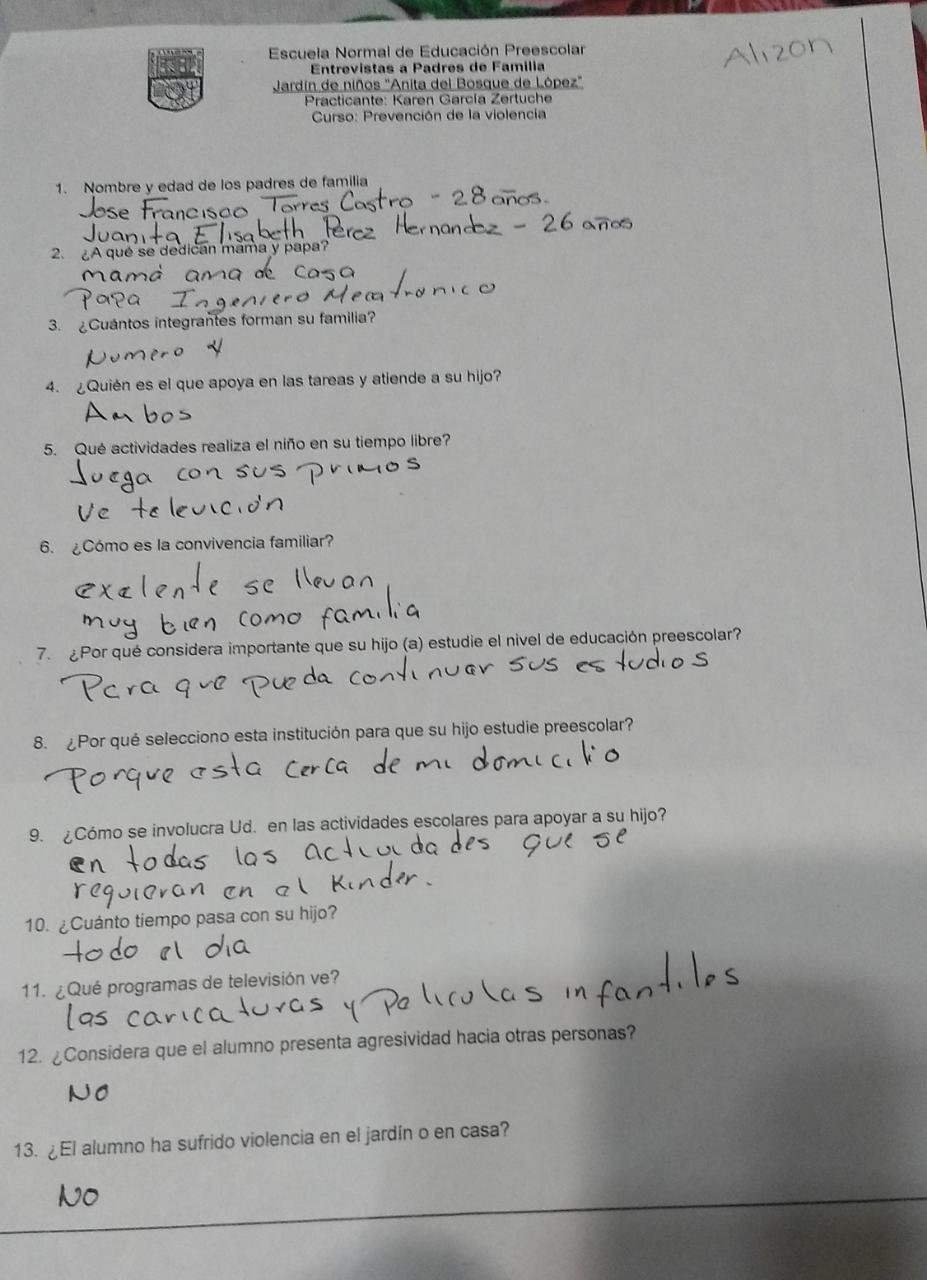 Alizon
Escuela Normal de Educación Preescolar
Entrevistas a Padres de Familia
Jardín de niños "Anita del Bosque de López"
Practicante: Karen García Zertuche
Curso: Prevención de la violencia
1. Nombre y edad de los padres de familia
Jose Francisco Torres Castro - 28 años.
Juanita Elisabeth Pérez Hernandez - 26 años
2. ¿A qué se dedican mama y papa?
mamá ama de casa
Papa Ingeniero Mecatronico
3. ¿Cuántos integrantes forman su familia?
Numero 4
4. ¿Quién es el que apoya en las tareas y atiende a su hijo?
Ambos
5. Qué actividades realiza el niño en su tiempo libre?
Juega con sus primos
Ve televición
6. ¿Cómo es la convivencia familiar?
exelente se llevan
muy bien como familia
7. ¿Por qué considera importante que su hijo (a) estudie el nivel de educación preescolar?
Para que pueda continuar sus estudios
8. ¿Por qué selecciono esta institución para que su hijo estudie preescolar?
Porque esta cerca de mi domicilio
9. ¿Cómo se involucra Ud. en las actividades escolares para apoyar a su hijo?
en todas las actividades que se
requieran en el Kinder.
10. ¿Cuánto tiempo pasa con su hijo?
todo el dia
11. ¿Qué programas de televisión ve?
las caricaturas y Peliculas infantiles
12. ¿Considera que el alumno presenta agresividad hacia otras personas?
NO
13. ¿El alumno ha sufrido violencia en el jardín o en casa?
NO